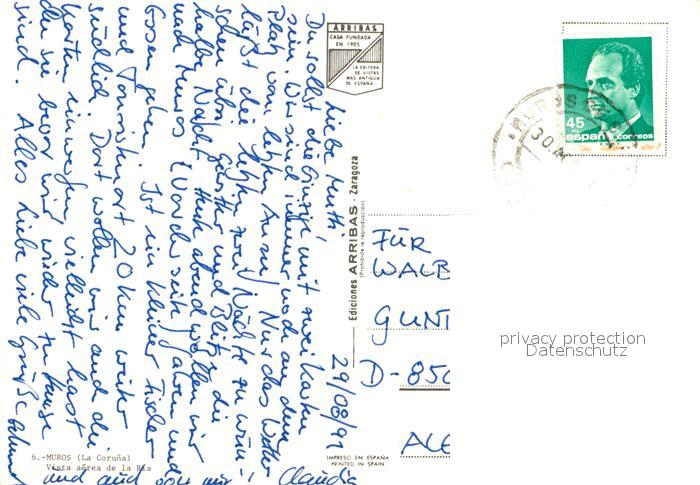 Liebe Muth,
Du sollst die Einzige mit zwei Karten
sein. Wir sind immer noch an dem
Platz von letzten Anruf. Nur das Wetter
läßt die letzten zwei Nächte zu wün-
schen übrig. Gewitter und Blitze die
halbe Nacht. Heute abend wollen wir
nach Muros (Vorderseite) fahren und
Essen gehen. Ist ein kleiner Fischer
und Touristenort 20 km weiter
südlich. Dort wollen wir auch die
Karten einwerfen, vielleicht hast
du sie bevor wir wieder zu Hause
sind. Alles Liebe viele Grüße
und
Claudia
29/08/91
ARRIBAS
CASA FUNDADA
EN 1905
LA EDITORA
DE VISTAS
MAS ANTIGUA
DE ESPAÑA
Ediciones ARRIBAS - Zaragoza
(Prohibida la reproducción)
6.-MUROS (La Coruña)
Vista aérea de la Ría
IMPRESO EN ESPAÑA
PRINTED IN SPAIN
45
PTA
españa correos
MUROS
30
FÜR
WALB
GUNT
D-850
privacy protection
Datenschutz